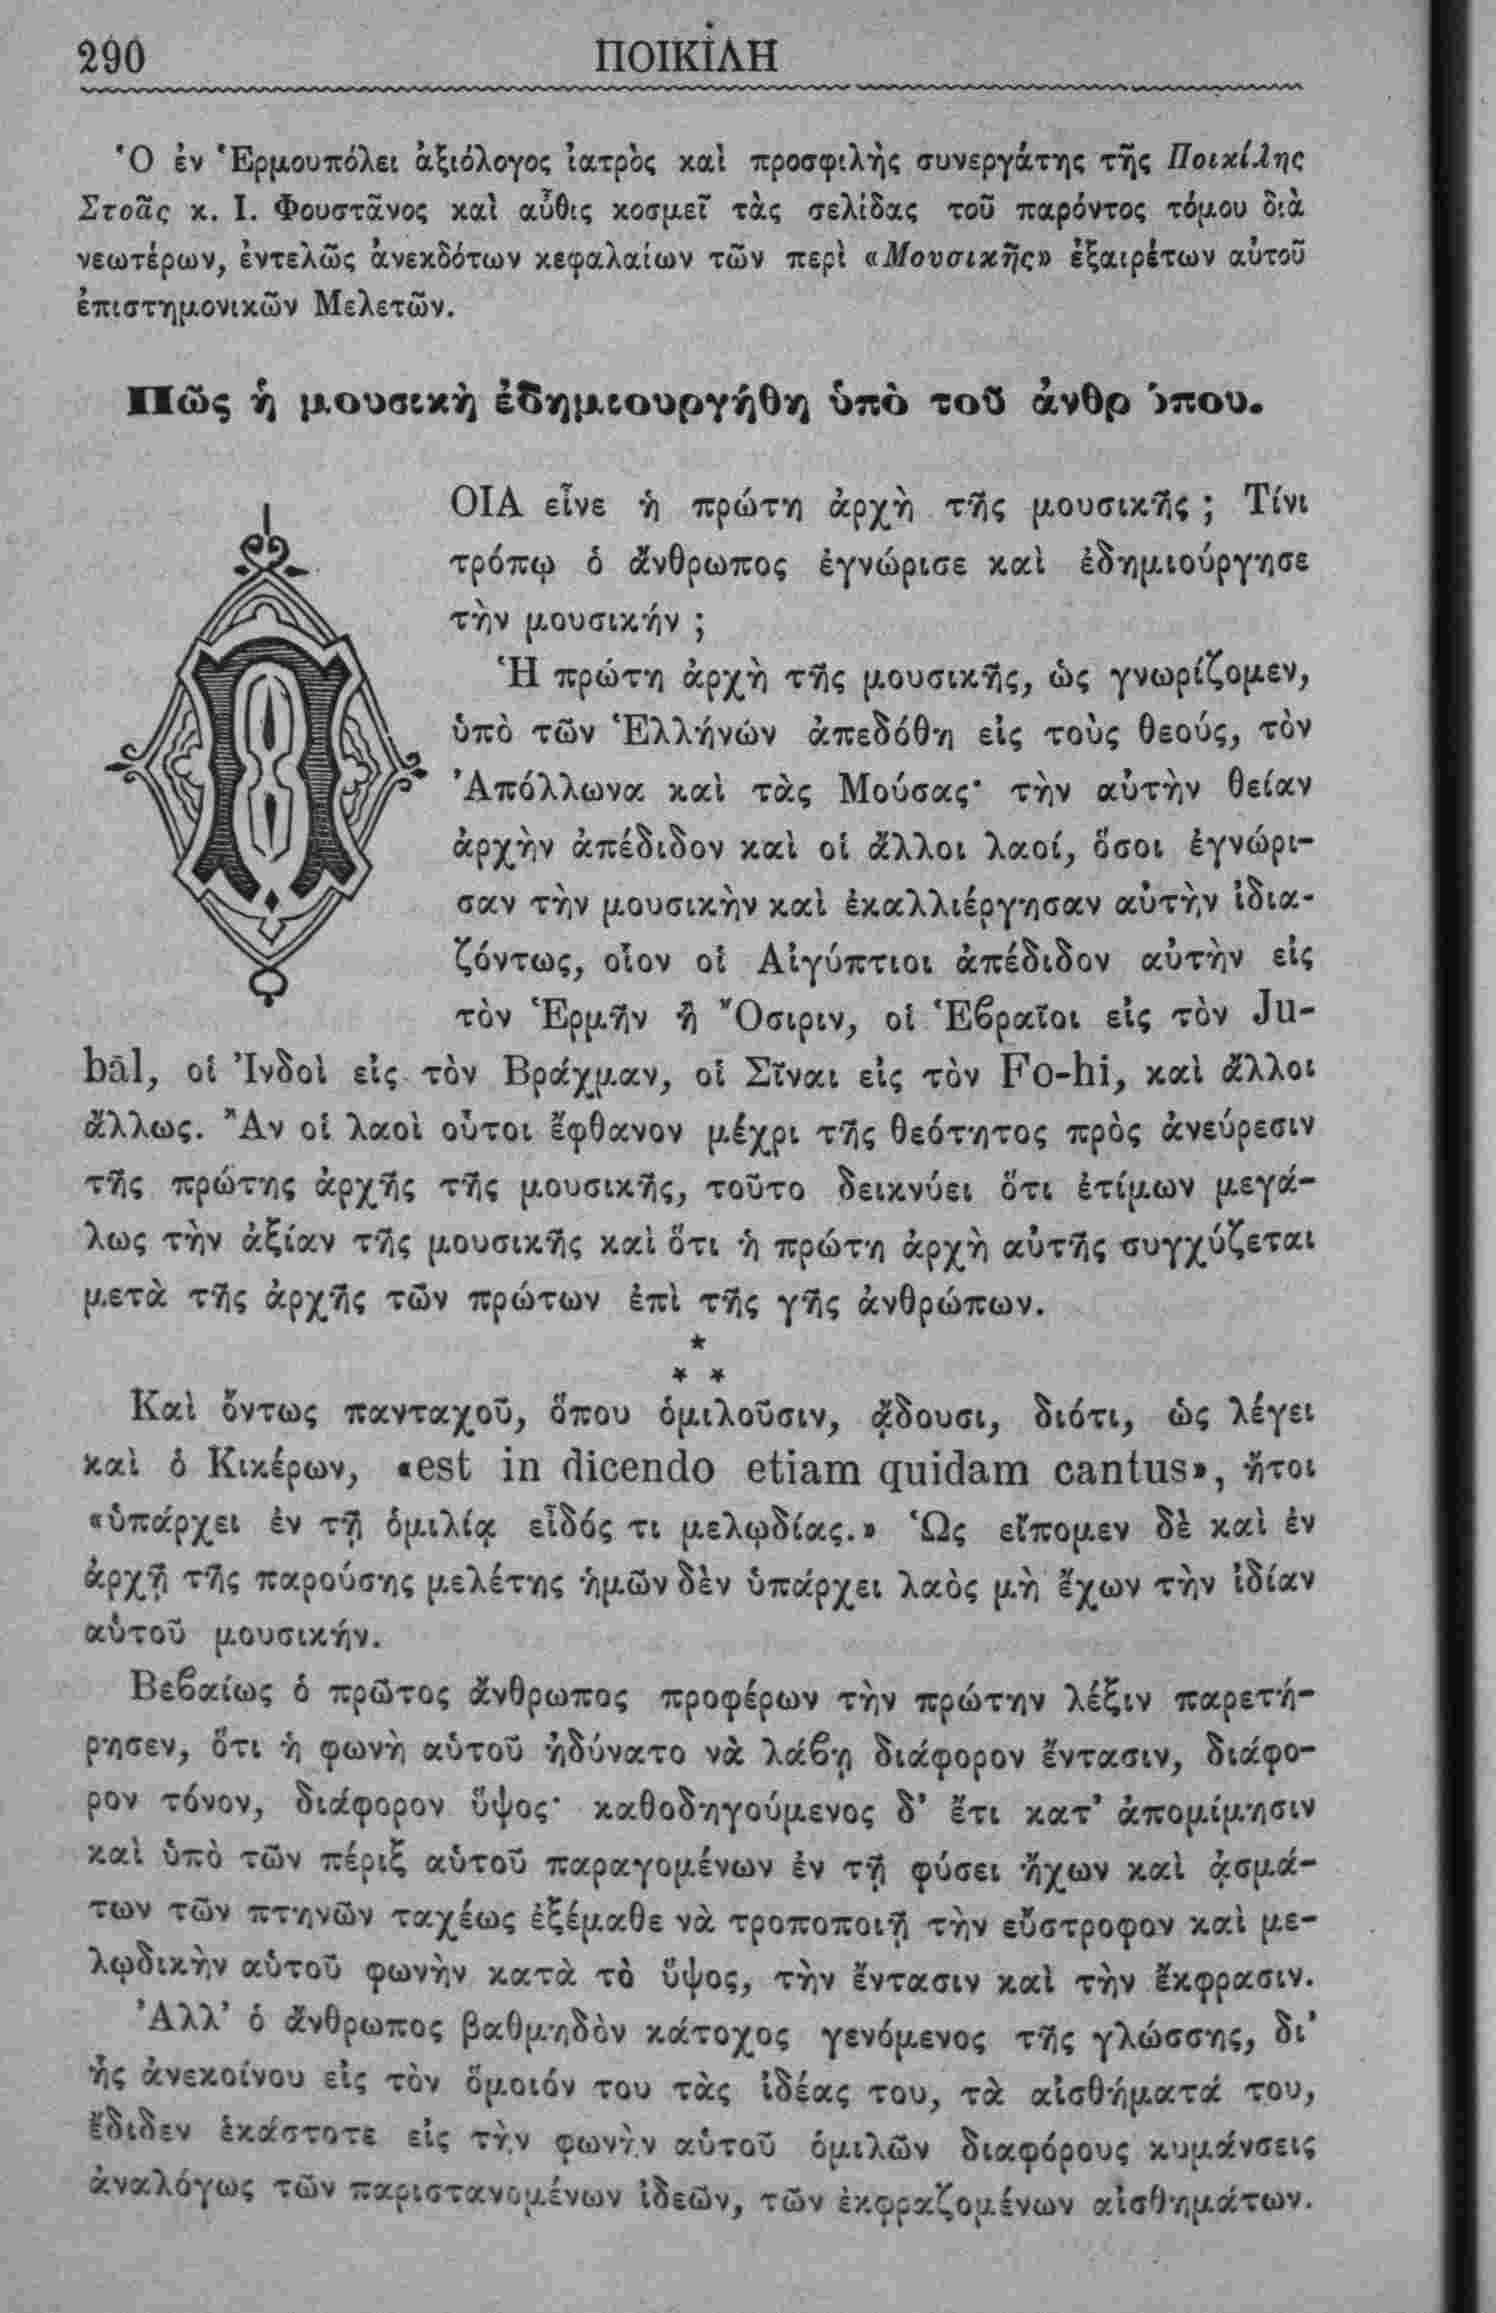 290 ΠΟΙΚΙΛΗ
Ὁ ἐν Ἑρμουπόλει ἀξιόλογος ἰατρὸς καὶ προσφιλὴς συνεργάτης τῆς Ποικίλης
Στοᾶς κ. Ι. Φουστᾶνος καὶ αὖθις κοσμεῖ τὰς σελίδας τοῦ παρόντος τόμου διὰ
νεωτέρων, ἐντελῶς ἀνεκδότων κεφαλαίων τῶν περὶ «Μουσικῆς» ἐξαιρέτων αὐτοῦ
ἐπιστημονικῶν Μελετῶν.
Πῶς ἡ μουσικὴ ἐδημιουργήθη ὑπὸ τοῦ ἀνθρώπου.
ΠΟΙΑ εἶνε ἡ πρώτη ἀρχὴ τῆς μουσικῆς ; Τίνι
τρόπῳ ὁ ἄνθρωπος ἐγνώρισε καὶ ἐδημιούργησε
τὴν μουσικήν ;
Ἡ πρώτη ἀρχὴ τῆς μουσικῆς, ὡς γνωρίζομεν,
ὑπὸ τῶν Ἑλλήνών ἀπεδόθη εἰς τοὺς θεούς, τὸν
Ἀπόλλωνα καὶ τὰς Μούσας· τὴν αὐτὴν θείαν
ἀρχὴν ἀπέδιδον καὶ οἱ ἄλλοι λαοί, ὅσοι ἐγνώρι-
σαν τὴν μουσικὴν καὶ ἐκαλλιέργησαν αὐτὴν ἰδια-
ζόντως, οἷον οἱ Αἰγύπτιοι ἀπέδιδον αὐτὴν εἰς
τὸν Ἑρμῆν ἢ Ὄσιριν, οἱ Ἑβραῖοι εἰς τὸν Ju-
bāl, οἱ Ἰνδοὶ εἰς τὸν Βράχμαν, οἱ Σῖναι εἰς τὸν Fo-hi, καὶ ἄλλοι
ἄλλως. Ἂν οἱ λαοὶ οὗτοι ἔφθανον μέχρι τῆς θεότητος πρὸς ἀνεύρεσιν
τῆς πρώτης ἀρχῆς τῆς μουσικῆς, τοῦτο δεικνύει ὅτι ἐτίμων μεγά-
λως τὴν ἀξίαν τῆς μουσικῆς καὶ ὅτι ἡ πρώτη ἀρχὴ αὐτῆς συγχύζεται
μετὰ τῆς ἀρχῆς τῶν πρώτων ἐπὶ τῆς γῆς ἀνθρώπων.
*
* *
Καὶ ὄντως πανταχοῦ, ὅπου ὁμιλοῦσιν, ᾄδουσι, διότι, ὡς λέγει
καὶ ὁ Κικέρων, «est in dicendo etiam quidam cantus», ἤτοι
«ὑπάρχει ἐν τῇ ὁμιλίᾳ εἶδός τι μελῳδίας.» Ὡς εἴπομεν δὲ καὶ ἐν
ἀρχῇ τῆς παρούσης μελέτης ἡμῶν δὲν ὑπάρχει λαὸς μὴ ἔχων τὴν ἰδίαν
αὑτοῦ μουσικήν.
Βεβαίως ὁ πρῶτος ἄνθρωπος προφέρων τὴν πρώτην λέξιν παρετή-
ρησεν, ὅτι ἡ φωνὴ αὑτοῦ ἠδύνατο νὰ λάβῃ διάφορον ἔντασιν, διάφο-
ρον τόνον, διάφορον ὕψος· καθοδηγούμενος δ' ἔτι κατ' ἀπομίμησιν
καὶ ὑπὸ τῶν πέριξ αὑτοῦ παραγομένων ἐν τῇ φύσει ἤχων καὶ ᾀσμά-
των τῶν πτηνῶν ταχέως ἐξέμαθε νὰ τροποποιῇ τὴν εὔστροφον καὶ με-
λῳδικὴν αὑτοῦ φωνὴν κατὰ τὸ ὕψος, τὴν ἔντασιν καὶ τὴν ἔκφρασιν.
Ἀλλ' ὁ ἄνθρωπος βαθμηδὸν κάτοχος γενόμενος τῆς γλώσσης, δι'
ἧς ἀνεκοίνου εἰς τὸν ὅμοιόν του τὰς ἰδέας του, τὰ αἰσθήματά του,
ἔδιδεν ἑκάστοτε εἰς τὴν φωνὴν αὑτοῦ ὁμιλῶν διαφόρους κυμάνσεις
ἀναλόγως τῶν παριστανομένων ἰδεῶν, τῶν ἐκφραζομένων αἰσθημάτων.